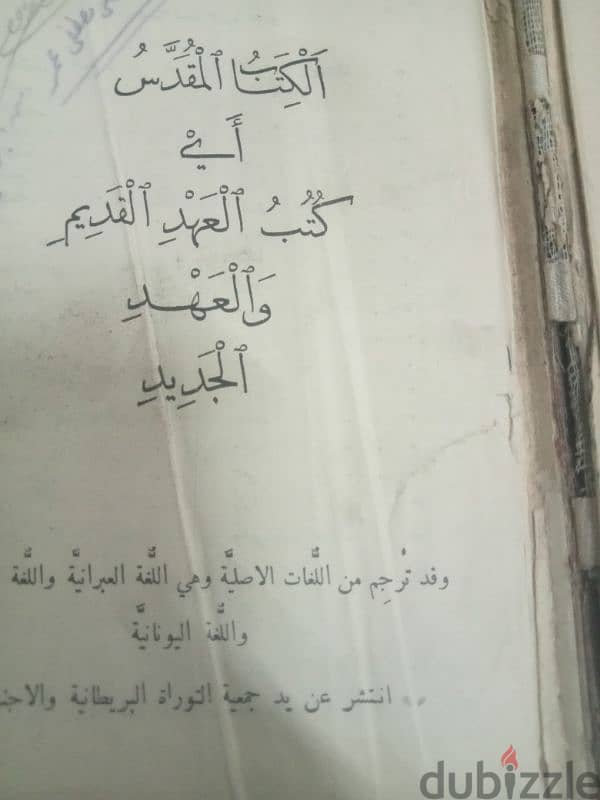 اَلْكِتَابُ ٱلْمُقَدَّسُ
أَيْ
كُتُبُ ٱلْعَهْدِ ٱلْقَدِيمِ
وَٱلْعَهْدِ
ٱلْجَدِيدِ
وقد تُرْجِم من اللُّغات الاصليَّة وهي اللُّغة العبرانيَّة واللغة
واللُّغة اليونانيَّة
انتشر عن يد جمعية التوراة البريطانية
dubizzle